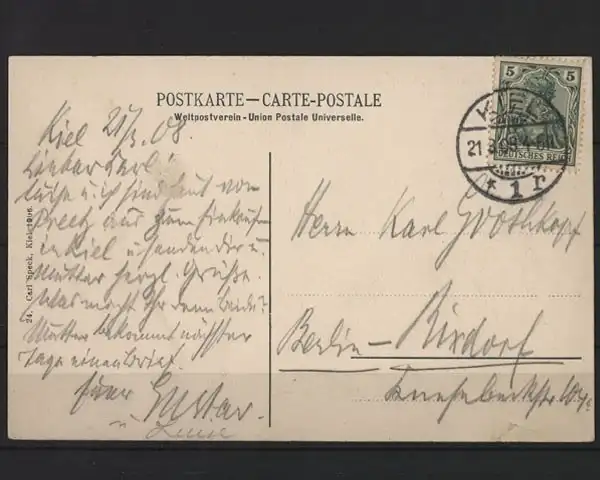 POSTKARTE—CARTE-POSTALE
Weltpostverein - Union Postale Universelle.
Kiel 21/3. 08.
Lieber Karl!
Luise u. ich sind heut von
Preetz aus zum Einkaufen
in Kiel u. senden Dir u.
Mutter herzl. Grüße.
Was macht Ihr denn beide?
Mutter bekommt nächster
Tage einen Brief.
Gustav.
u. Luise
24. Carl Speck, Kiel 1906.
5 5
DEUTSCHES REICH
KIEL
21.3.08.4-5N
* 1 r
Herrn Karl Grothkopf
Berlin—Rixdorf
Knesebeckstr.